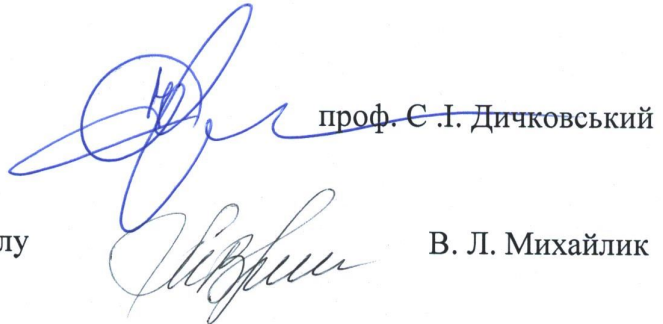 проф. С .І. Дичковський
лу В. Л. Михайлик